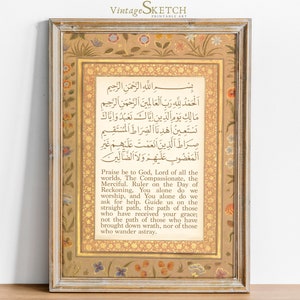 Vintage SKETCH
PRINTABLE ART
بِسْمِ اللَّهِ الرَّحْمَنِ الرَّحِيمِ
الْحَمْدُ لِلَّهِ رَبِّ الْعَالَمِينَ الرَّحْمَنِ الرَّحِيمِ
مَالِكِ يَوْمِ الدِّينِ إِيَّاكَ نَعْبُدُ وَإِيَّاكَ
نَسْتَعِينُ اهْدِنَا الصِّرَاطَ الْمُسْتَقِيمَ
صِرَاطَ الَّذِينَ أَنْعَمْتَ عَلَيْهِمْ غَيْرِ
الْمَغْضُوبِ عَلَيْهِمْ وَلَا الضَّالِّينَ
Praise be to God, Lord of all the
worlds. The Compassionate, the
Merciful. Ruler on the Day of
Reckoning. You alone do we
worship, and You alone do we
ask for help. Guide us on the
straight path, the path of those
who have received your grace;
not the path of those who have
brought down wrath, nor of those
who wander astray.